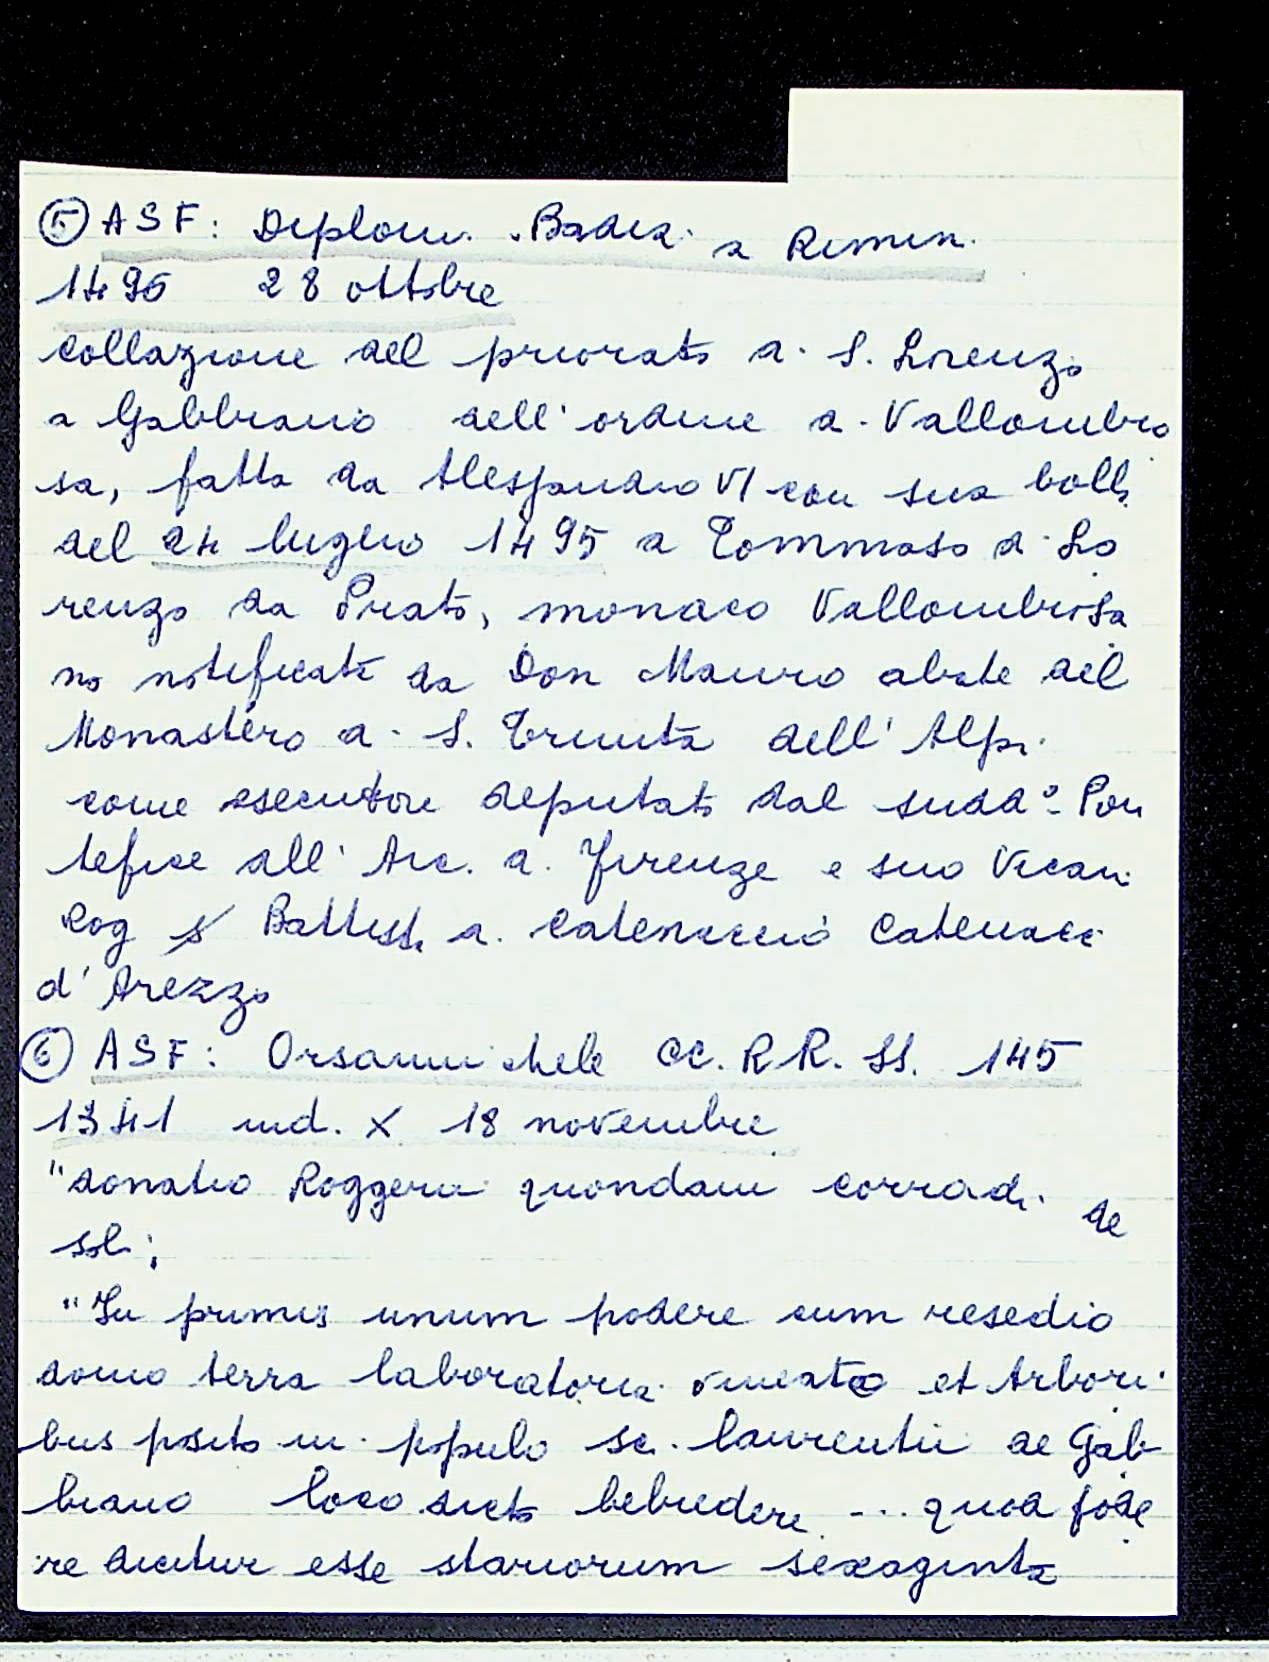 ⑤ ASF: Diplom. Badia a Rimin.
1495 28 ottobre
collazione del priorato di S. Lorenzo
a Gabbiano dell'ordine di Vallombro
sa, fatta da Alessandro VI con sua bolla
del 24 luglio 1495 a Tommaso di Lo
renzo da Prato, monaco Vallombrosa
no notificata da Don Mauro abate del
Monastero di S. Trinita dell'Alpi
come esecutore deputato dal sudd° Pon
tefice all'Arc. di Firenze e suo Vicari
Rog Battista di Catenaccio Catenacci
d'Arezzo
⑥ ASF: Orsanmichele CC. RR. SS. 145
1341 ind. X 18 novembre
"donatio Roggerii quondam corradi de
soli;
"In primis unum podere cum resedio
domo terra laboratoria vineato et Arbori
bus posito in populo sci. laurentii de Gab
biano loco dicto bebredere ... quod pode
re dicitur esse stariorum sexaginta